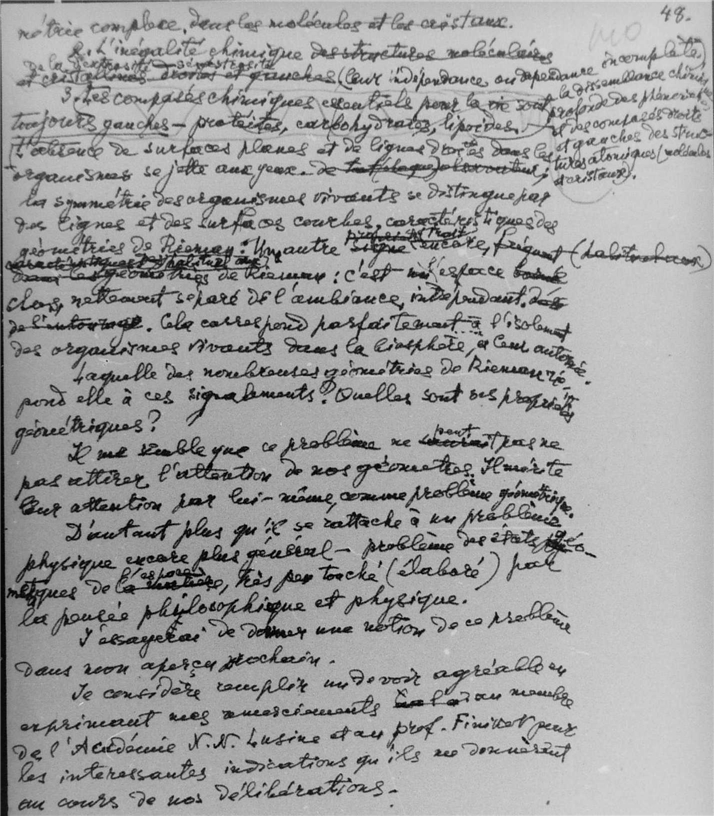 48.
métrie complexe, dans les molécules et les cristaux.
2. L'inégalité chimique des structures moléculaires
et cristallines droites et gauches (leur indépendance ou dépendance incomplète,
la dissemblance chimique
profonde des phénomènes
et des composés droits
et gauches des struc-
tures atomiques (molécules
et cristaux).
3. Les composés chimiques essentiels pour la vie sont
toujours gauches – protéites, carbohydrates, lipoïdes.
L'absence de surfaces planes et de lignes droites dans les
organismes se jette aux yeux. de
la symmétrie des organismes vivants se distingue par
des lignes et des surfaces courbes, caractéristiques des
géométries de Rieman. Un autre signe encore, fréquent
dans les géométries de Rieman : c'est l'espace
clos, nettement séparé de l'ambiance, indépendant.
de l'entourage. Cela correspond parfaitement à l'isolement
des organismes vivants dans la biosphère, à leur autonomie.
Laquelle des nombreuses géométries de Rieman ré-
pond elle à ces signalements? Quelles sont ses propriétés
géométriques?
Il me semble que ce problème ne peut pas ne
pas attirer l'attention de nos géometres. Il mérite
leur attention par lui-même, comme problème géométrique.
D'autant plus qu'il se rattache à un problème
physique encore plus général – problème des états géo-
métriques de l'espace, très peu touché (élaboré) par
la pensée philosophique et physique.
J'essayerai de donner une notion de ce problème
dans mon aperçu prochain.
Je considère remplir un devoir agréable en
exprimant mes remerciements au membre
de l'Académie N.N. Lusine et au prof. Finikov pour
les interessantes indications qu'ils me donnèrent
au cours de nos délibérations.